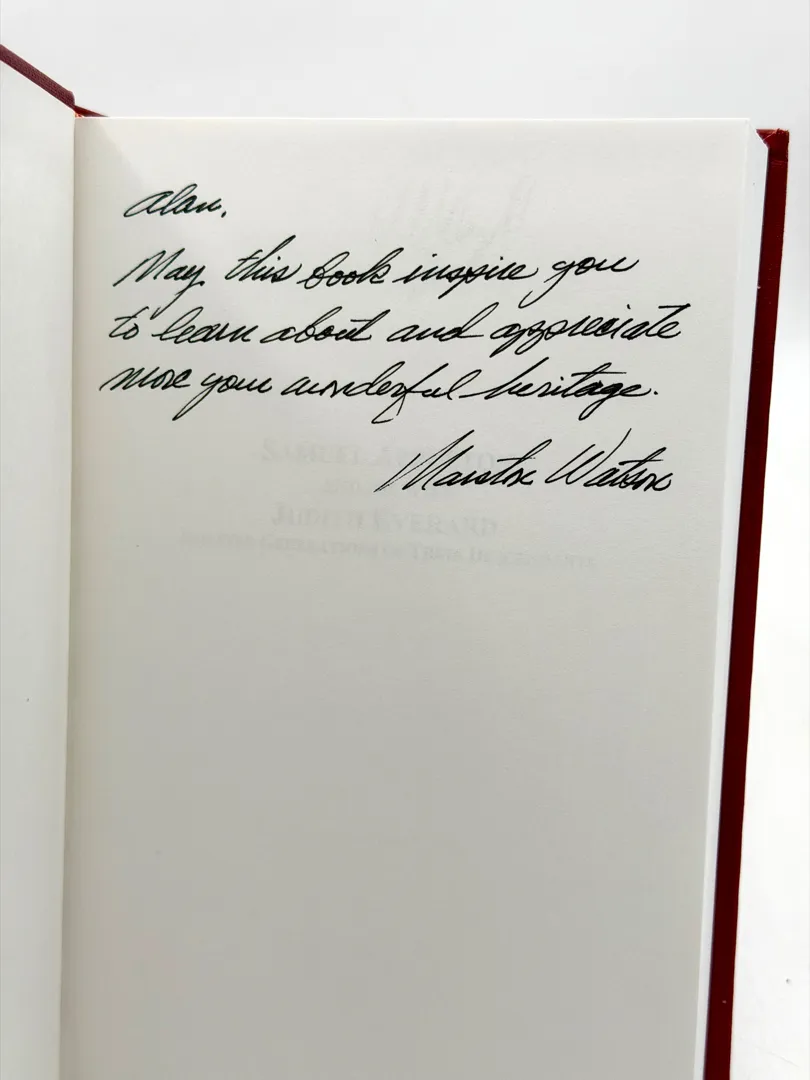 Alan,
May this book inspire you
to learn about and appreciate
more your wonderful heritage.
Marston Watson
SAMUEL
AND
JUDITH EVERARD
GENERATIONS OF THEIR DESCENDANTS